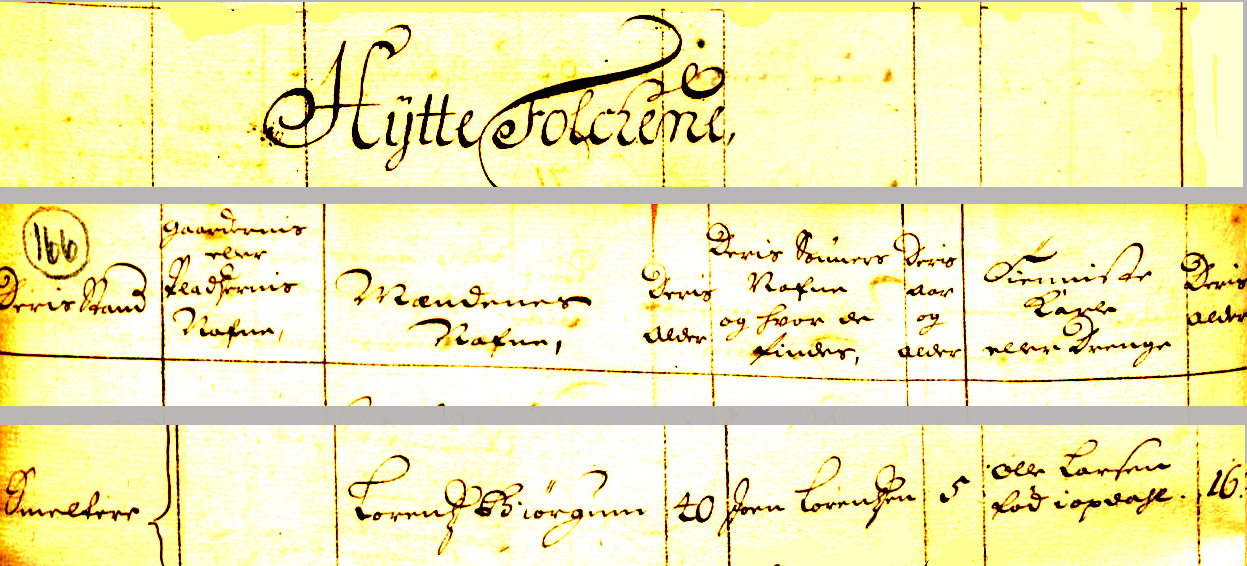 Hÿtte Folchene,
166
Deris Stand
Gaardernis
eller
Pladzernis
Nafne,
Mændenes
Nafne,
Deris
alder
Deris Sønners
Nafne
og hvor de
findes,
Deris
aar
og
alder
Tienniste
Karle
eller Drenge
Deris
alder
Smeltere
Lorentz
40
Joen Lorentzen
5
Olle Larsen
fød i opdahl.
16.